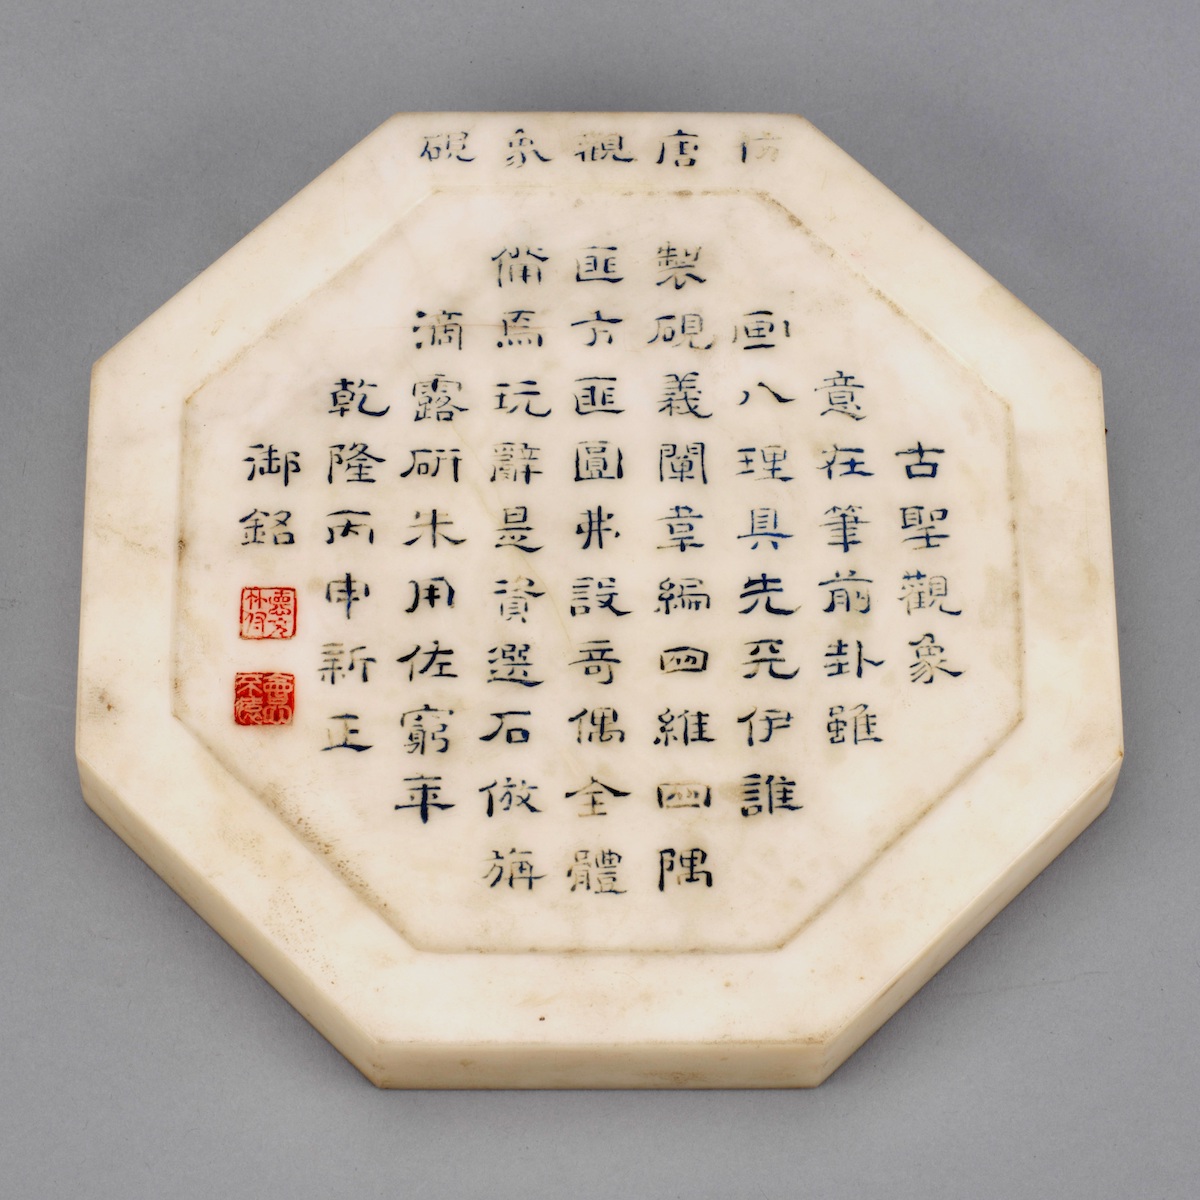 仿唐觀象硯
古聖觀象
意在筆前卦雖
画八理具先天伊誰
製硯義闡韋編四維四隅
匪方匪圓弗設奇偶全體
備焉玩辭是資選石倣旃
滴露研朱用佐窮年
乾隆丙申新正
御銘
德充符
會心不遠